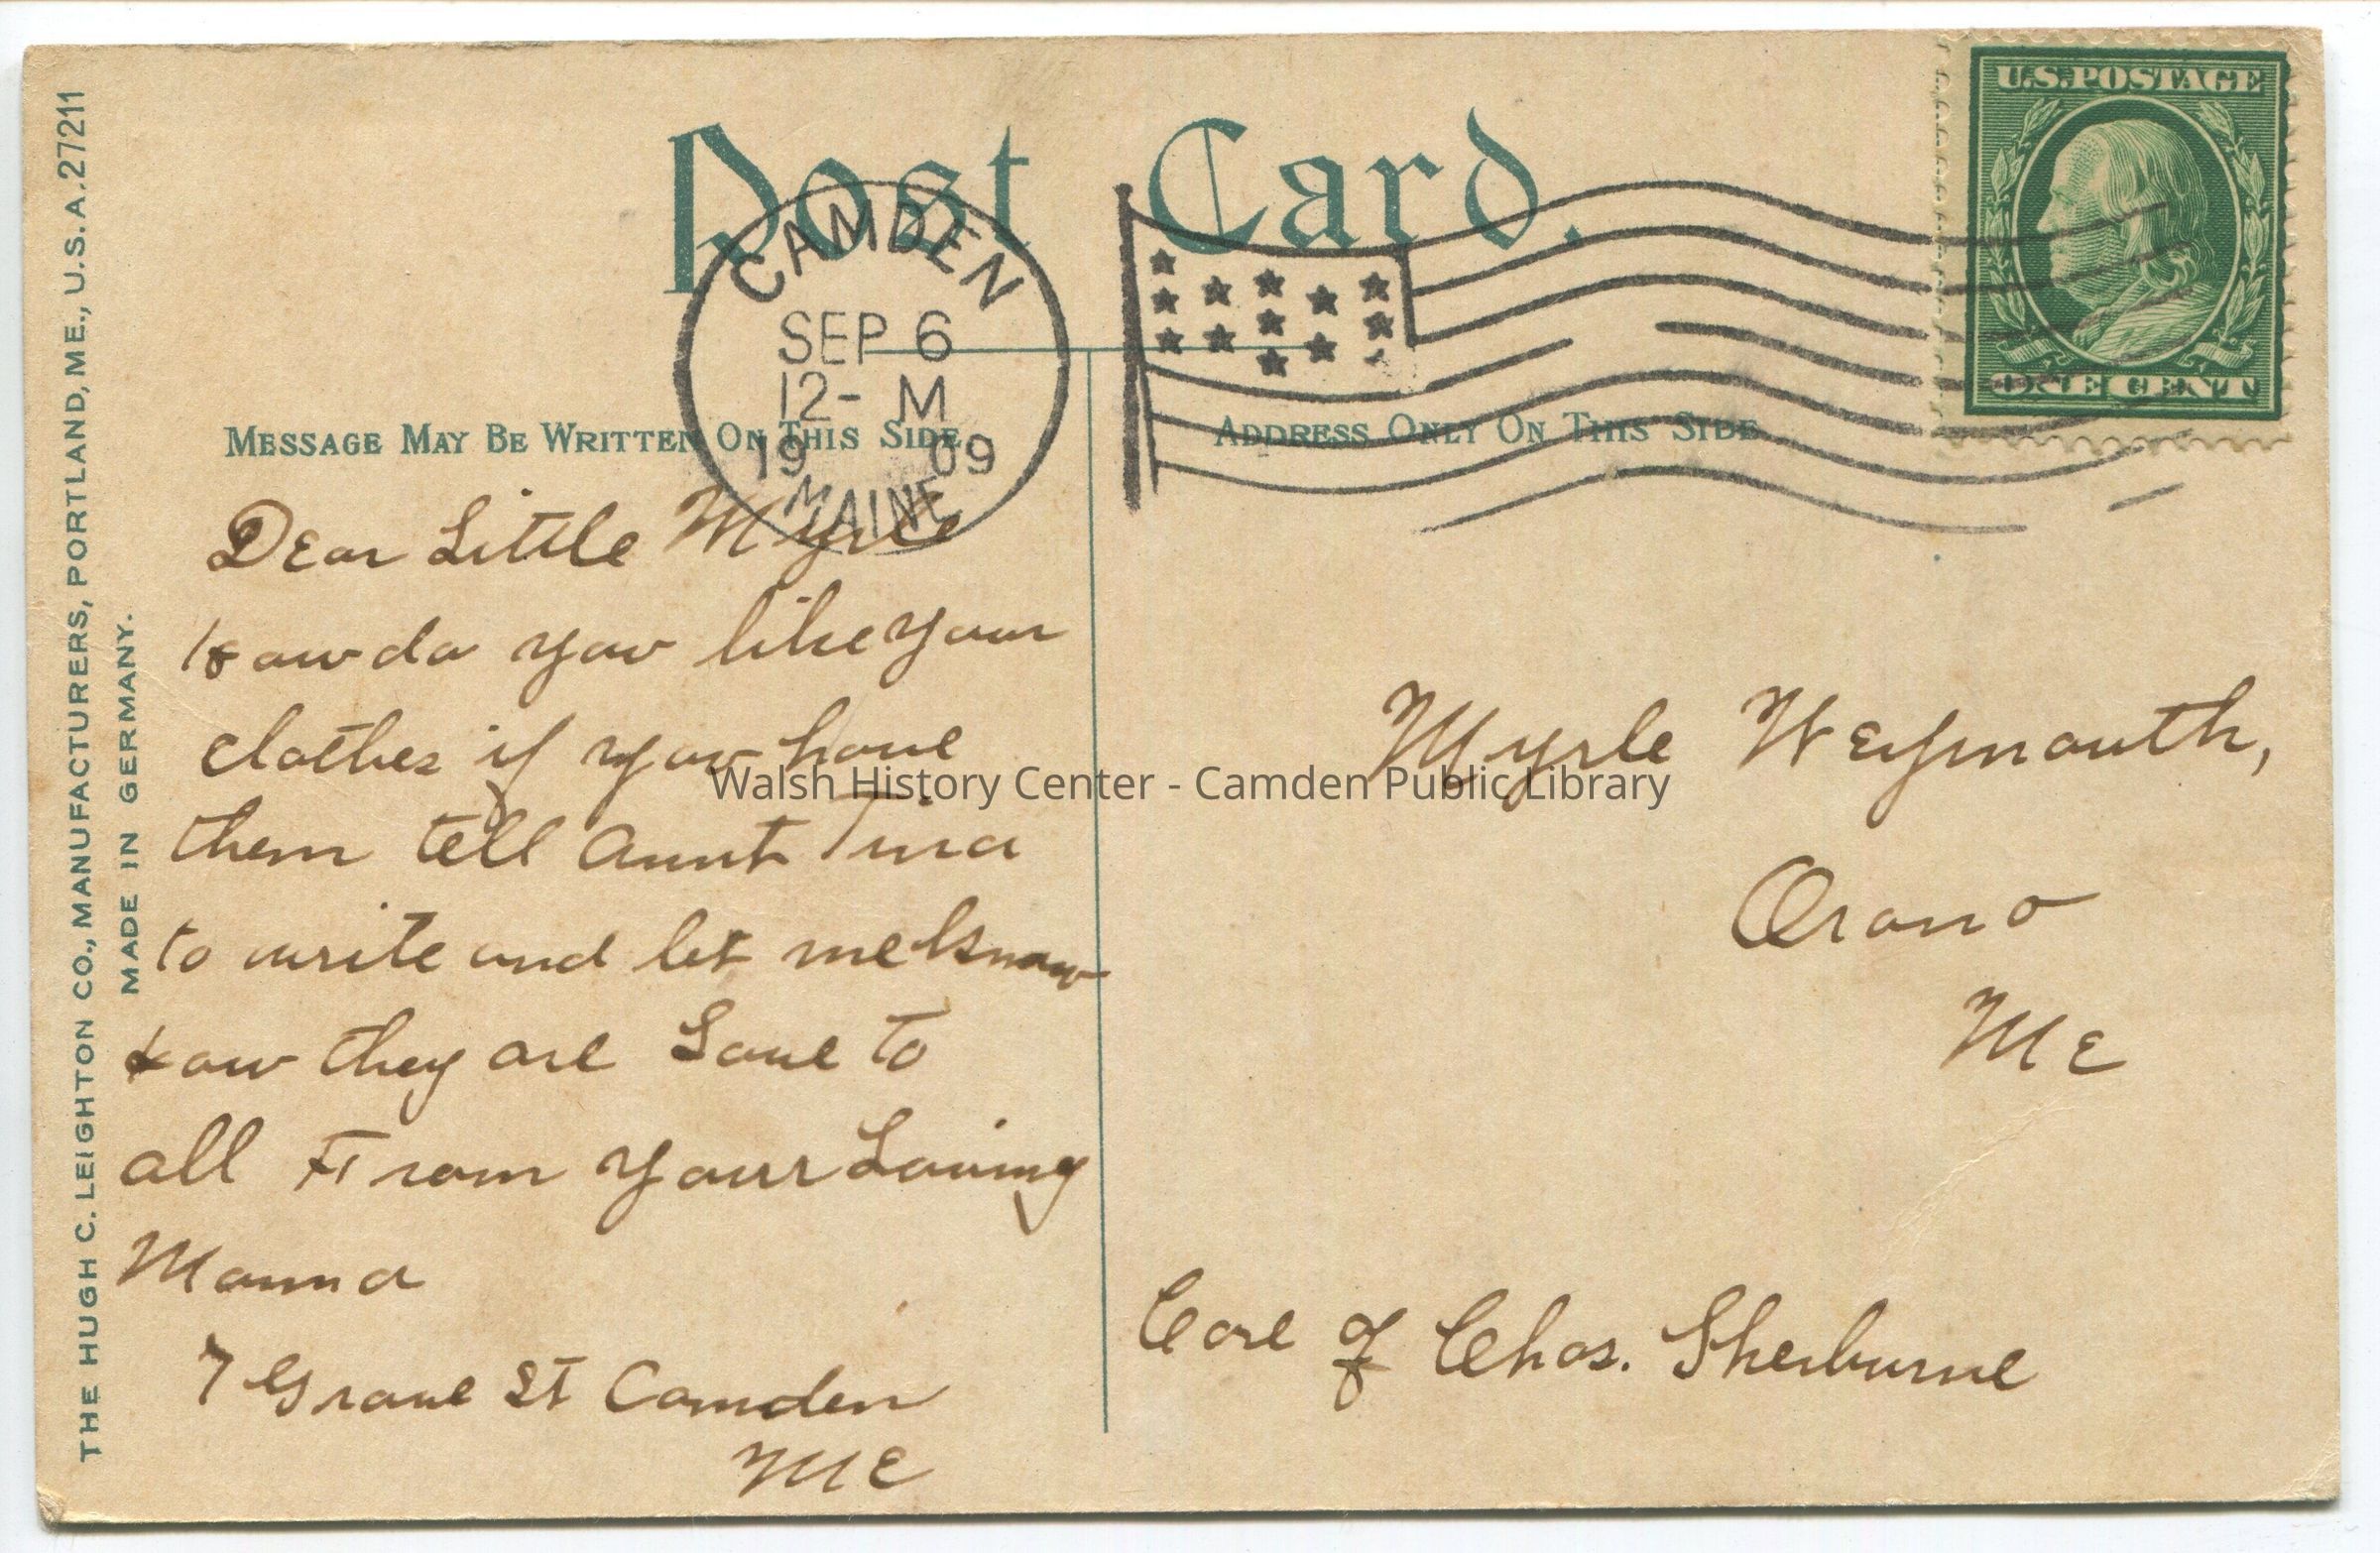 THE HUGH C. LEIGHTON CO., MANUFACTURERS, PORTLAND, ME., U.S.A. 27211
MADE IN GERMANY.
Post Card.
CAMDEN
SEP 6
12- M
19 09
MAINE
U.S. POSTAGE
ONE CENT
MESSAGE MAY BE WRITTEN ON THIS SIDE
ADDRESS ONLY ON THIS SIDE
Dear Little Myrle
How do you like your
clothes if you have
them tell Aunt Tina
to write and let me know
how they are Love to
all From your Loving
Mama
7 Grove St Camden
Me
Myrle Weymouth,
Orono
Me
Care of Chas. Sherburne
Walsh History Center - Camden Public Library